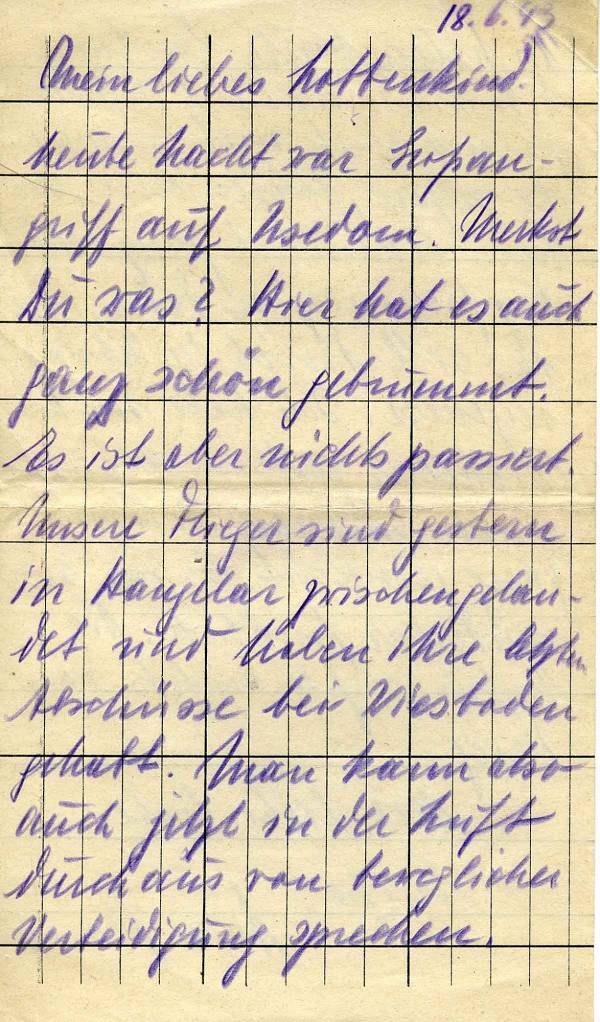 18. 6. 43
Mein liebes Lottenkind.
heute Nacht war Gross an-
griff auf Usedom. Merkst
Du was? Hier hat es auch
ganz schön gebrummt.
Es ist aber nichts passiert.
Unsere Flieger sind gestern
in Hangelar zwischengelan-
det und haben ihre letzten
Abschüsse bei Wiesbaden
gehabt. Man kann also
auch jetzt in der Luft
durchaus von beweglicher
Verteidigung sprechen.